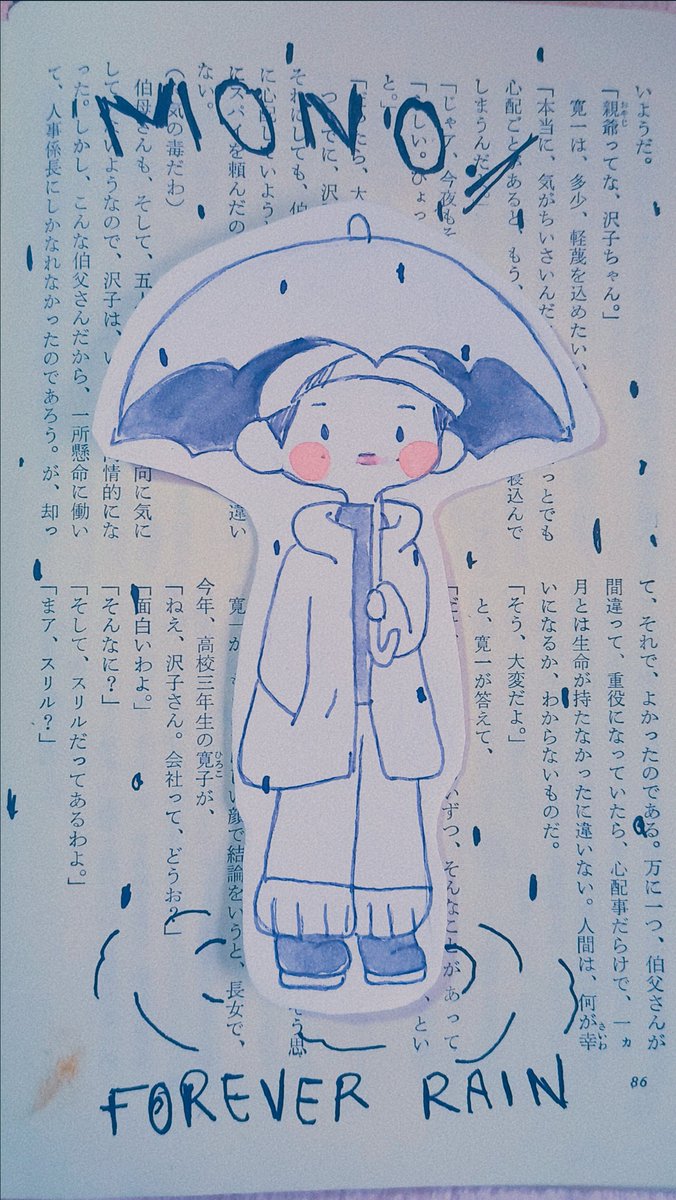 MONO.
いようだ。
「親爺ってな、沢子ちゃん。」
寛一は、多少、軽蔑を込めたいい
「本当に、気がちいさいんだ
心配ごとがあると、もう、 っとでも
しまうんだ 寝込んで
「じゃア、今夜も
しい。ひょっ
と。」
たら、大
つでに、沢
それにしても、伯
に心配していよう
にスパイを頼んだの 違い
ない。
気の毒だわ)
伯母さんも、そして、五 向に気に
して いようなので、沢子は、い 情的にな
った。しかし、こんな伯父さんだから、一所懸命に働い
て、人事係長にしかなれなかったのであろう。が、却っ
て、それで、よかったのである。万に一つ、伯父さんが
間違って、重役になっていたら、心配事だらけで、一ヵ
月とは生命が持たなかったに違いない。人間は、何が幸
いになるか、わからないものだ。
「そう、大変だよ。」
と、寛一が答えて、
いずつ、そんなことがあって
、とい
そう思
寛一が
顔で結論をいうと、長女で、
今年、高校三年生の寛子が、
「ねえ、沢子さん。会社って、どうお?」
「面白いわよ。」
「そんなに?」
「そして、スリルだってあるわよ。」
「まア、スリル?」
86
FOREVER RAIN